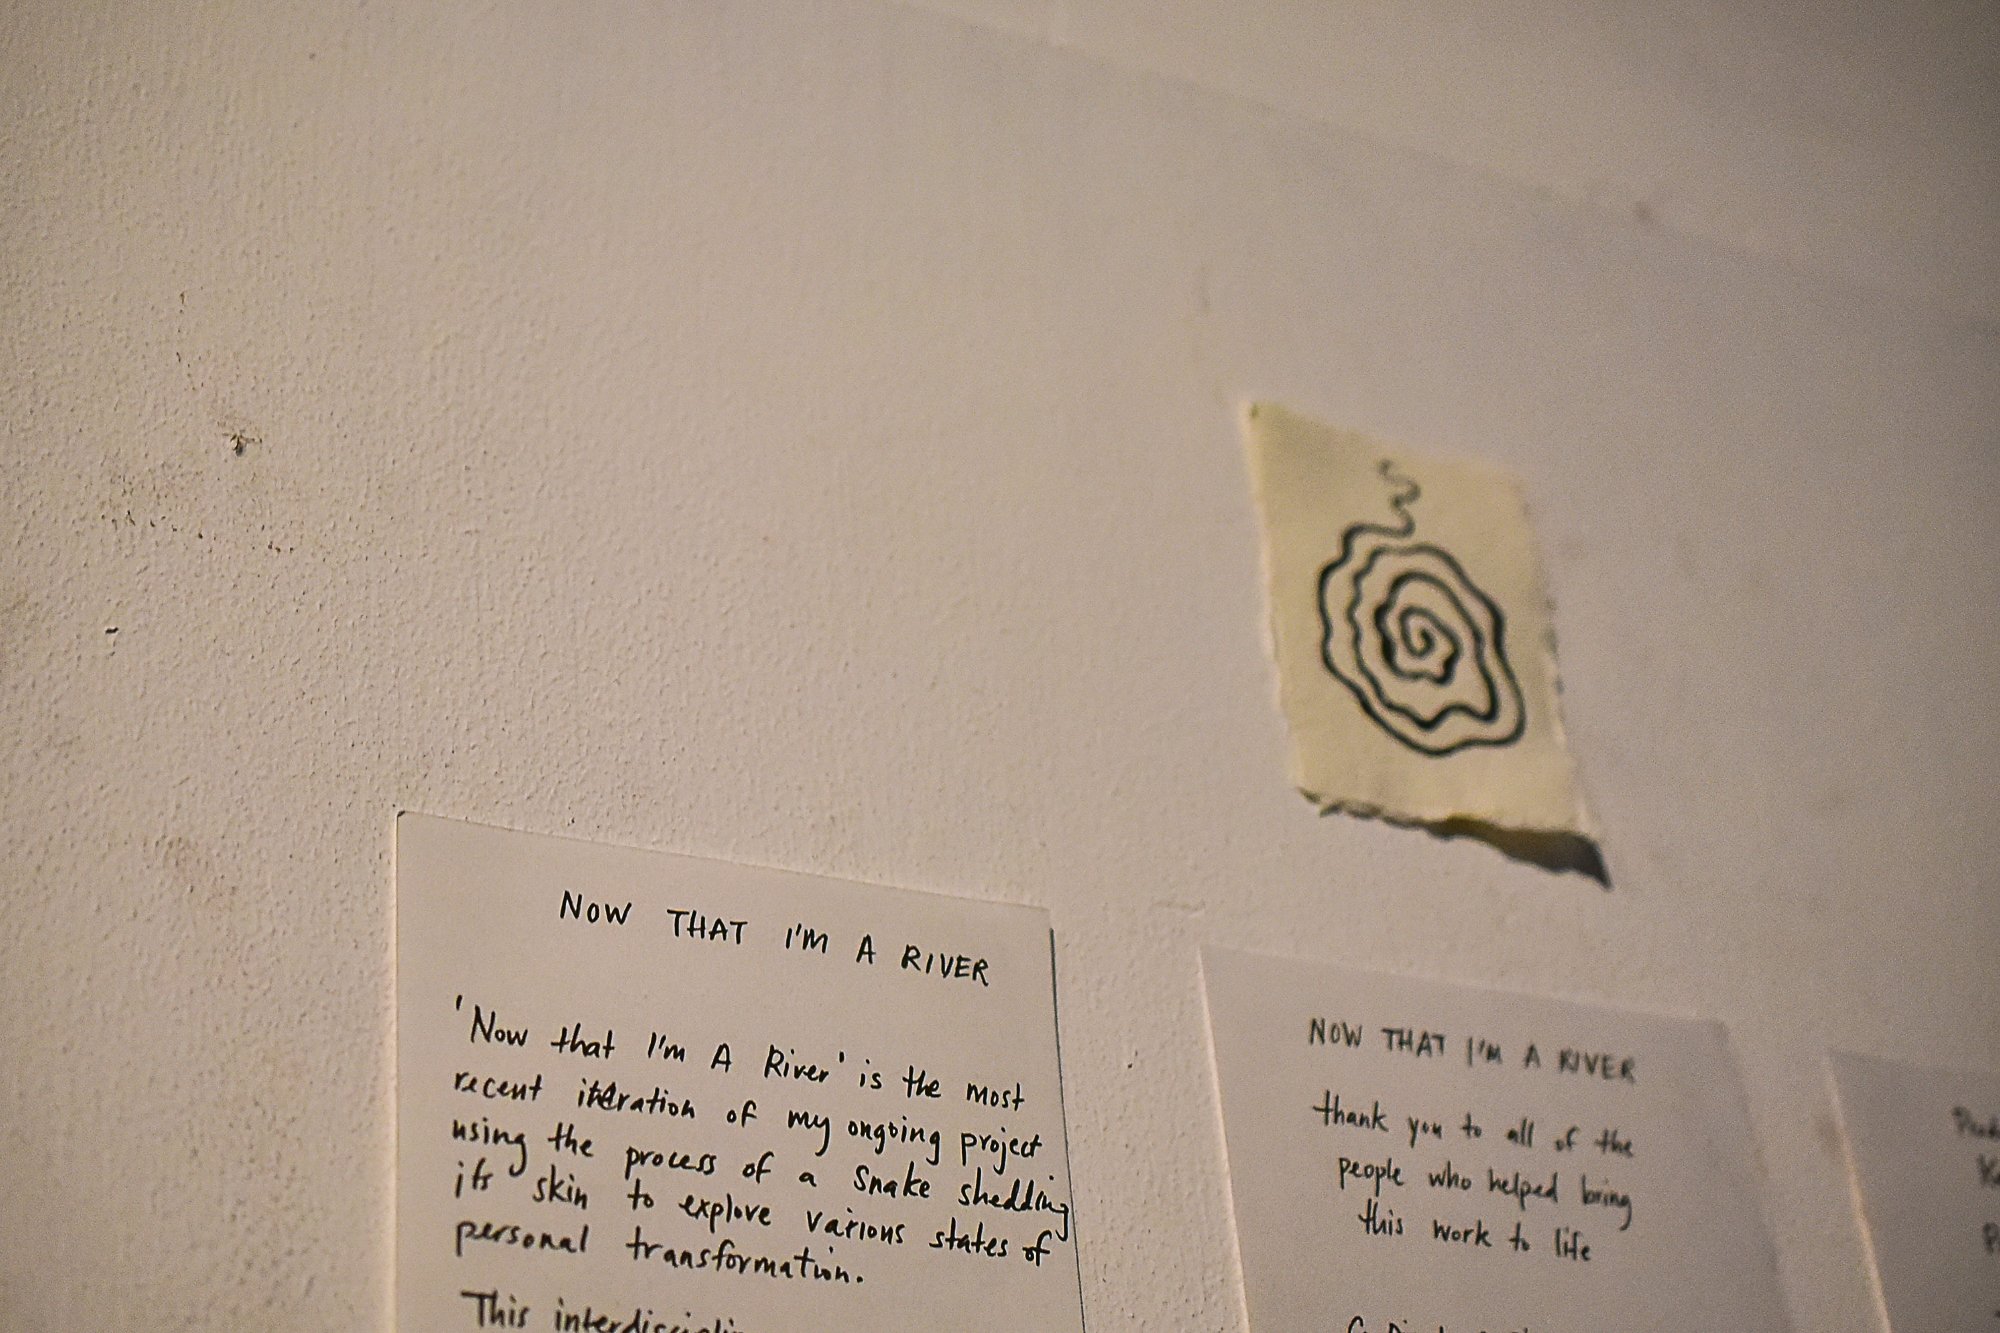 NOW THAT I'M A RIVER
'Now that I'm A River' is the most
recent iteration of my ongoing project
using the process of a snake shedding
its skin to explore various states of
personal transformation.
This
NOW THAT I'M A RIVER
thank you to all of the
people who helped bring
this work to life